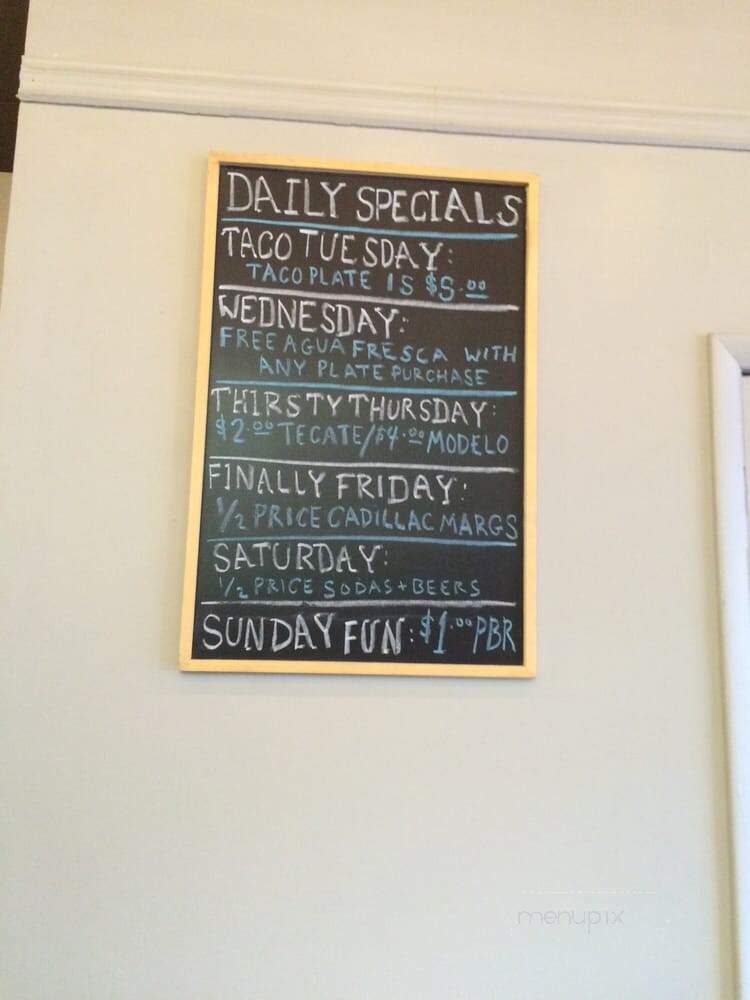 DAILY SPECIALS
TACO TUESDAY:
TACO PLATE IS $5.00
WEDNESDAY:
FREE AGUA FRESCA WITH
ANY PLATE PURCHASE
THIRSTY THURSDAY:
$2.00 TECATE/$4.00 MODELO
FINALLY FRIDAY:
1/2 PRICE CADILLAC MARGS
SATURDAY:
1/2 PRICE SODAS + BEERS
SUNDAY FUN: $1.00 PBR
menupix